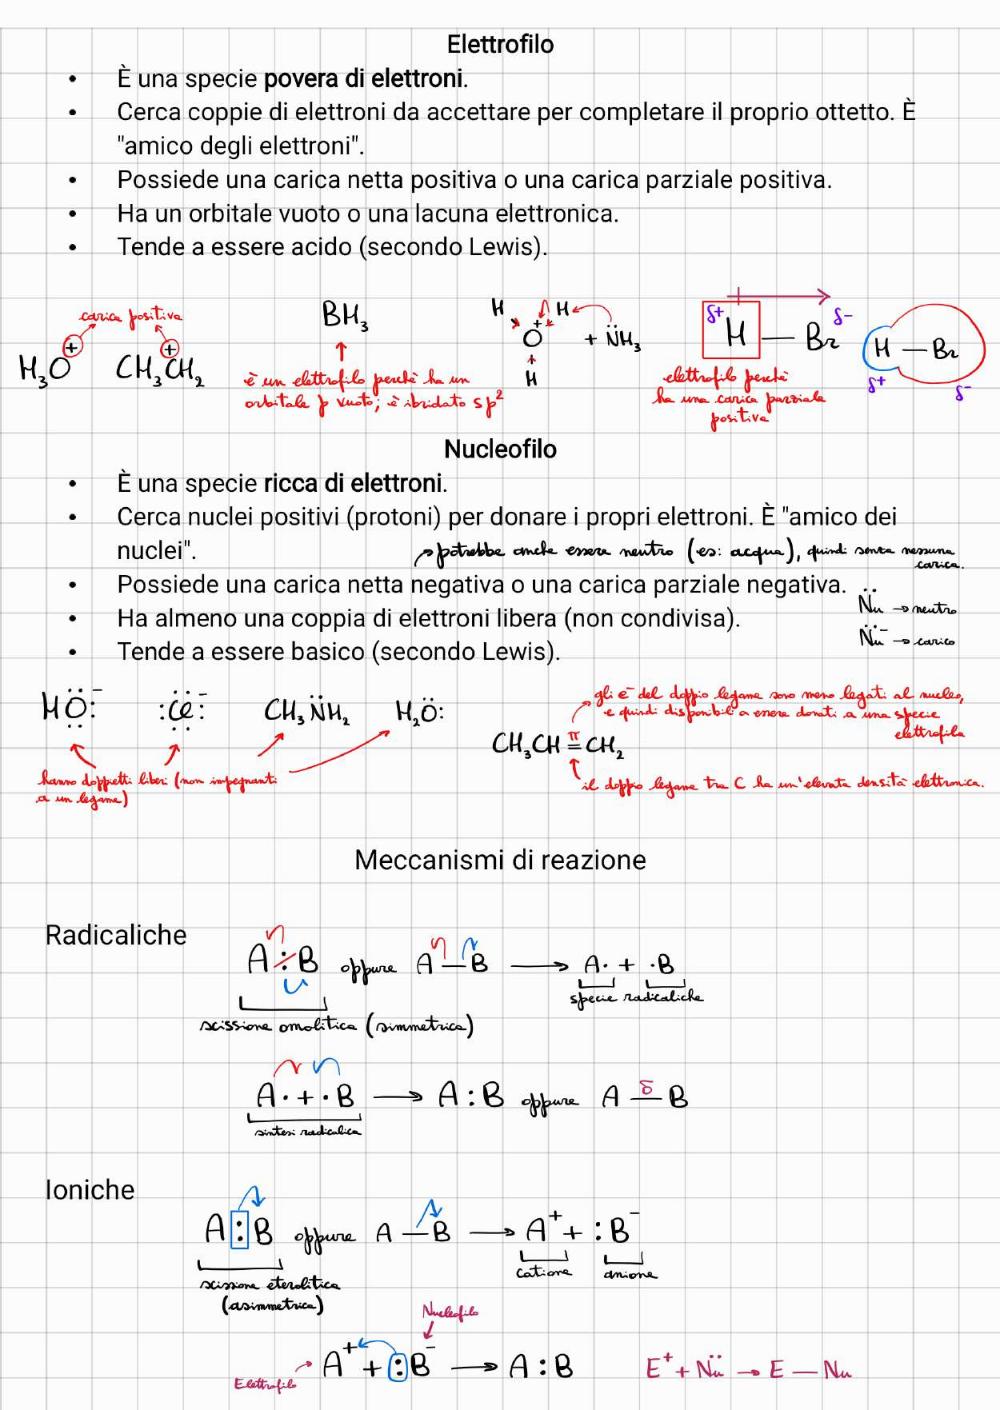 Elettrofilo
• È una specie povera di elettroni.
• Cerca coppie di elettroni da accettare per completare il proprio ottetto. È
"amico degli elettroni".
• Possiede una carica netta positiva o una carica parziale positiva.
• Ha un orbitale vuoto o una lacuna elettronica.
• Tende a essere acido (secondo Lewis).
carica positiva
H₃O⁺ CH₃CH₂⁺
BH₃
è un elettrofilo perché ha un
orbitale p vuoto; è ibridato sp²
H H
O⁺ + N̈H₃
H
δ+ H — Br δ-
elettrofilo perché
ha una carica parziale
positiva
H — Br
δ+ δ-
Nucleofilo
• È una specie ricca di elettroni.
• Cerca nuclei positivi (protoni) per donare i propri elettroni. È "amico dei
nuclei".
potrebbe anche essere neutro (es: acqua), quindi senza nessuna
carica.
• Possiede una carica netta negativa o una carica parziale negativa.
N̈u → neutro
• Ha almeno una coppia di elettroni libera (non condivisa).
N̈u⁻ → carico
• Tende a essere basico (secondo Lewis).
HÖ:⁻ :C̈l:⁻ CH₃N̈H₂ H₂Ö:
hanno doppietti liberi (non impegnanti
a un legame)
gli e⁻ del doppio legame sono meno legati al nucleo,
e quindi disponibili a essere donati a una specie
elettrofila
π
CH₃CH=CH₂
il doppio legame tra C ha un'elevata densità elettronica.
Meccanismi di reazione
Radicaliche
A:B oppure A—B → A· + ·B
specie radicaliche
scissione omolitica (simmetrica)
A· + ·B → A:B oppure A δ— B
sintesi radicalica
Ioniche
A:B oppure A—B → A⁺ + :B⁻
catione anione
scissione eterolitica
(asimmetrica)
Nucleofilo
A⁺ + :B⁻ → A:B E⁺ + N̈u → E—Nu
Elettrofilo